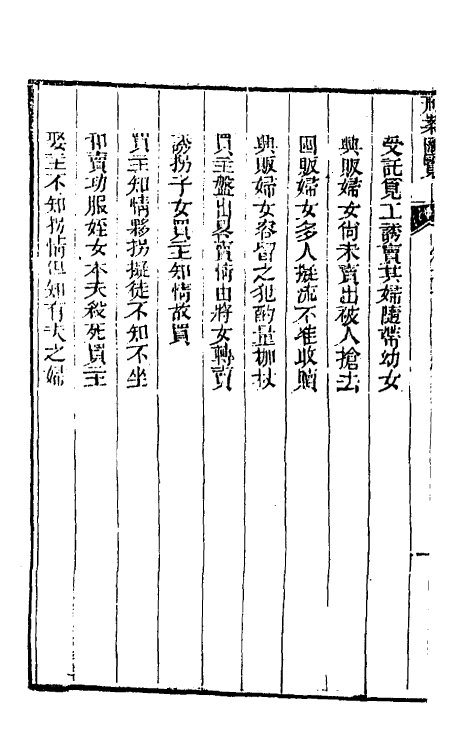 刑案匯覽
受託覓工誘賣其婦隨帶幼女
興販婦女尚未賣出被人搶去
圖販婦女多人擬流不准收贖
興販婦女容留之犯酌量枷杖
買主盤出略賣情由將女轉賣
誘拐子女買主知情故買
買主知情夥拐擬徒不知不坐
和賣功服姪女本夫殺死買主
娶主不知拐情但知有夫之婦